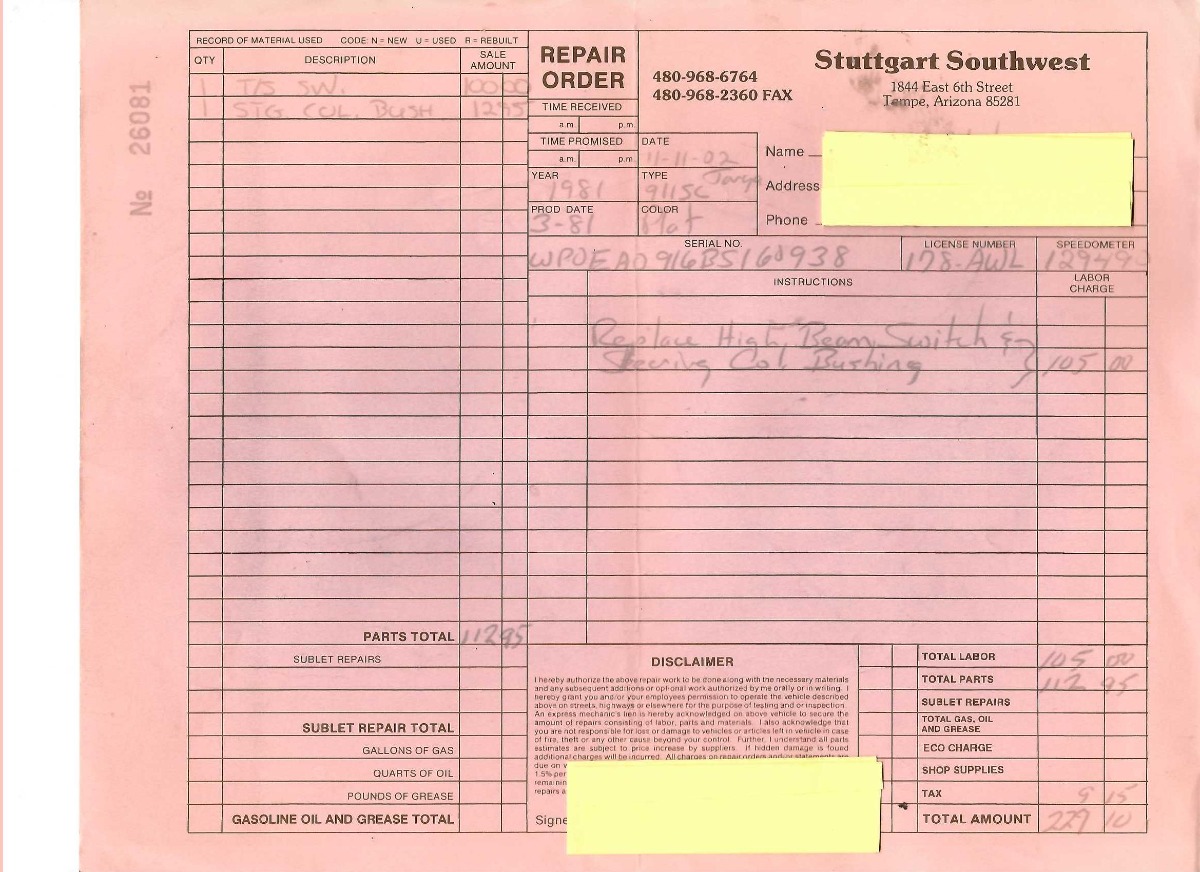 RECORD OF MATERIAL USED CODE: N = NEW U = USED R = REBUILT
QTY DESCRIPTION SALE AMOUNT
1 T/S SW. 100 00
1 STG COL. BUSH 12 95
PARTS TOTAL 112 95
SUBLET REPAIRS
SUBLET REPAIR TOTAL
GALLONS OF GAS
QUARTS OF OIL
POUNDS OF GREASE
GASOLINE OIL AND GREASE TOTAL
No 26081
REPAIR ORDER
TIME RECEIVED
a.m. p.m.
TIME PROMISED
a.m. p.m.
480-968-6764
480-968-2360 FAX
Stuttgart Southwest
1844 East 6th Street
Tempe, Arizona 85281
DATE
11-11-02
YEAR
1981
TYPE
911SC Targa
PROD DATE
3-81
COLOR
Name
Address
Phone
SERIAL NO.
WP0EA0916BS160938
LICENSE NUMBER
178-AWL
SPEEDOMETER
12949
INSTRUCTIONS
LABOR CHARGE
Replace High Beam Switch &
Steering Col. Bushing 105 00
DISCLAIMER
I hereby authorize the above repair work to be done along with the necessary materials
and any subsequent additions or optional work authorized by me orally or in writing. I
hereby grant you and/or your employees permission to operate the vehicle described
above on streets, highways or elsewhere for the purpose of testing and/or inspection.
An express mechanic's lien is hereby acknowledged on above vehicle to secure the
amount of repairs consisting of labor, parts and materials. I also acknowledge that
you are not responsible for loss or damage to vehicles or articles left in vehicle in case
of fire, theft or any other cause beyond your control. Further, I understand all parts
estimates are subject to price increase by suppliers. If hidden damage is found
additional charges will be incurred. All charges on repair orders and/or statements are
due on
1.5% per
remainin
repairs a
Signe
TOTAL LABOR 105 00
TOTAL PARTS 112 95
SUBLET REPAIRS
TOTAL GAS, OIL AND GREASE
ECO CHARGE
SHOP SUPPLIES
TAX 9 15
TOTAL AMOUNT 229 10